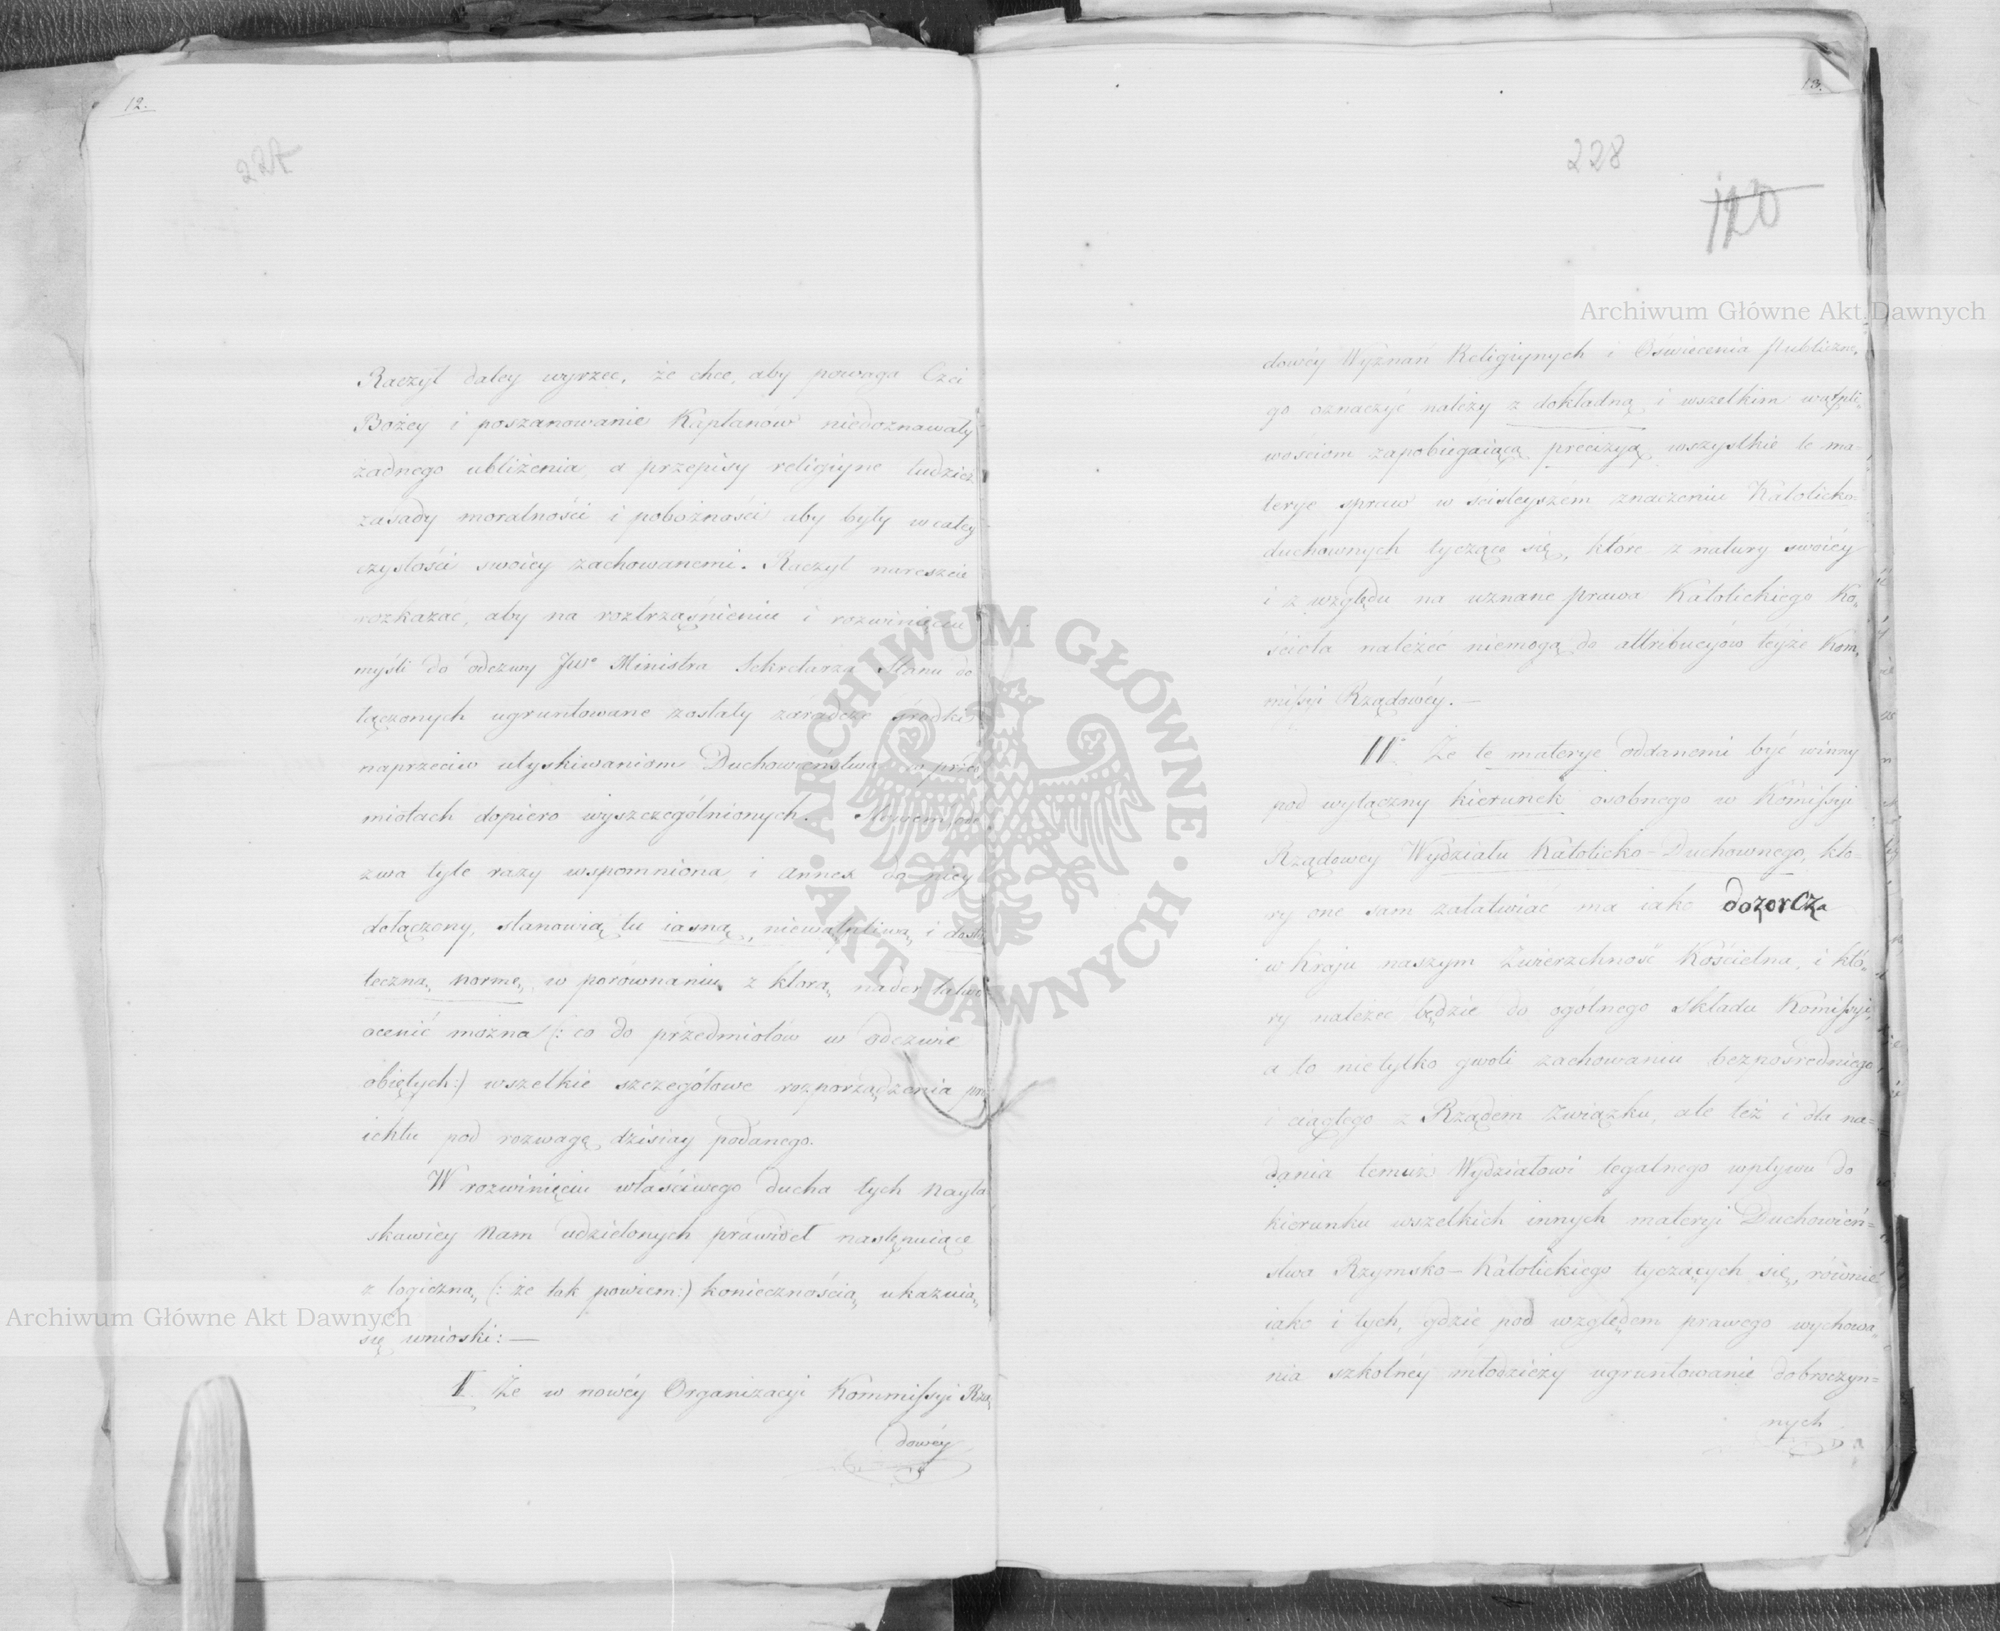 12.
227
Raczył daley wyrzec, że chce, aby powaga Czci
Bożey i poszanowanie Kapłanów niedoznawały
żadnego ubliżenia, a przepisy religiyne tudzież
zasady moralności i pobożności aby były w całey
czystości swoiey zachowanemi. Raczył nareszcie
rozkazać, aby na roztrząśnieniu i rozwinięciu
myśli do odezwy JWo Ministra Sekretarza Stanu do
łączonych ugruntowane zostały zaradcze środki
naprzeciw utyskiwaniom Duchowieństwa w przed
miotach dopiero wyszczególnionych. Słowem ode
zwa tyle razy wspomniona i annex do niey
dołączony, stanowią tu iasną, niewątpliwą, i dosta
teczną normę, w porównaniu z którą nader łatwo
ocenić można (: co do przedmiotów w odezwie
obiętych:) wszelkie szczegółowe rozporządzenia pro
iektu pod rozwagę dzisiay podanego.
W rozwinięciu właściwego ducha tych nayła
skawiey Nam udzielonych prawideł następuiące
z logiczną (: że tak powiem:) koniecznością ukazuią
się wnioski: —
I. Że w nowéy Organizacyi Kommissyi Rzą
dowéy
13.
228
120
dowéy Wyznań Religiynych i Oświecenia Publiczne,
go oznaczyć należy z dokładną i wszelkim wątpli,
wościom zapobiegaiącą precizyą wszystkie te ma-
terye spraw w ściśleyszém znaczeniu Katolicko-
duchownych tyczące się, które z natury swoiéy
i z względu na uznane prawa Katolickiego Ko,
ścioła należeć niemogą do attribucyów téyże Kom,
missyi Rządowéy. —
II. Że te materye oddanemi być winny
pod wyłączny kierunek osobnego w Kommissyi
Rządowey Wydziału Katolicko-Duchownego, któ-
ry one sam załatwiać ma iako dozorcza
w Kraju naszym Zwierzchność Kościelna, i któ-
ry należeć będzie do ogólnego składu Kommissyi,
a to nietylko gwoli zachowaniu bezpośredniego
i ciągłego z Rządem związku, ale też i dla na=
dania temuż Wydziałowi legalnego wpływu do
kierunku wszelkich innych materyi Duchowień=
stwa Rzymsko-Katolickiego tyczących się, równie
iako i tych, gdzie pod względem prawego wychowa,
nia szkolnéy młodzieży ugruntowanie dobroczyn=
nych
ARCHIWUM GŁÓWNE AKT DAWNYCH
Archiwum Główne Akt Dawnych
Archiwum Główne Akt Dawnych